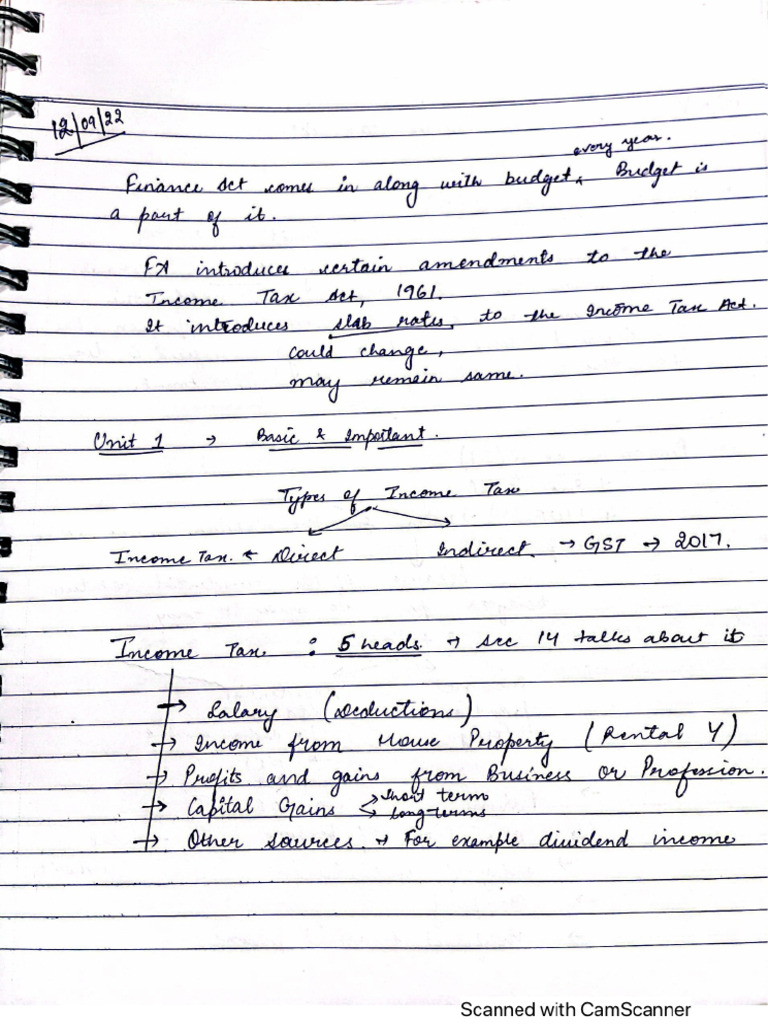 12/09/22
every year.
Finance Act comes in along with budget, Budget is
a part of it.
FA introduces certain amendments to the
Income Tax Act, 1961.
It introduces slab rates, to the Income Tax Act.
could change,
may remain same.
Unit 1 → Basic & Important.
Types of Income Tax
Income Tax. ← Direct Indirect. → GST → 2017.
Income Tax. : 5 heads. → sec 14 talks about it
→ Salary (Deductions)
→ Income from House Property (Rental Y)
→ Profits and gains from Business or Profession.
→ Capital Gains → Short term
→ Long terms
→ Other sources. → For example dividend income
Scanned with CamScanner